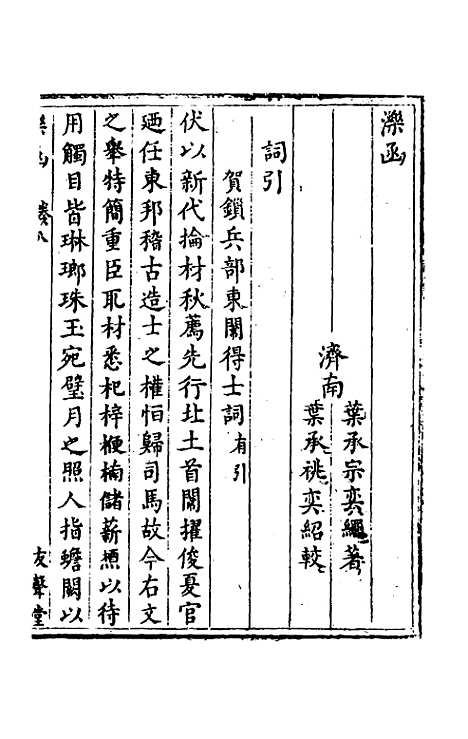 濼函
濟南
葉承宗奕繩著
葉承祧奕紹較
詞引
賀鎖兵部東闈得士詞有引
伏以新代掄材秋薦先行北土首闈擢俊憂官
廼任東邦稽古造士之權怕歸司馬故今右文
之舉特簡重臣取材悉杞梓楩楠儲薪槱以待
用觸目皆琳瑯珠玉宛璧月之照人指蟾闕以
卷八
友聲堂